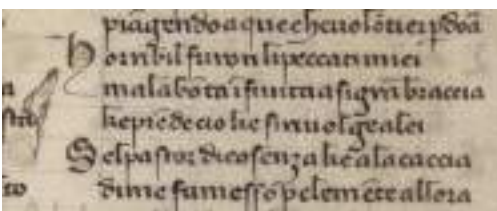 piãgendo a que che uolõtier pdõa
Horribil furon li peccati miei
ma la bõta ĩfinita a si grã braccia
ke prẽde cio ke si riuolge a lei
Se l pastor di cosenza ke a la caccia
di me fu messo p clemẽte allora